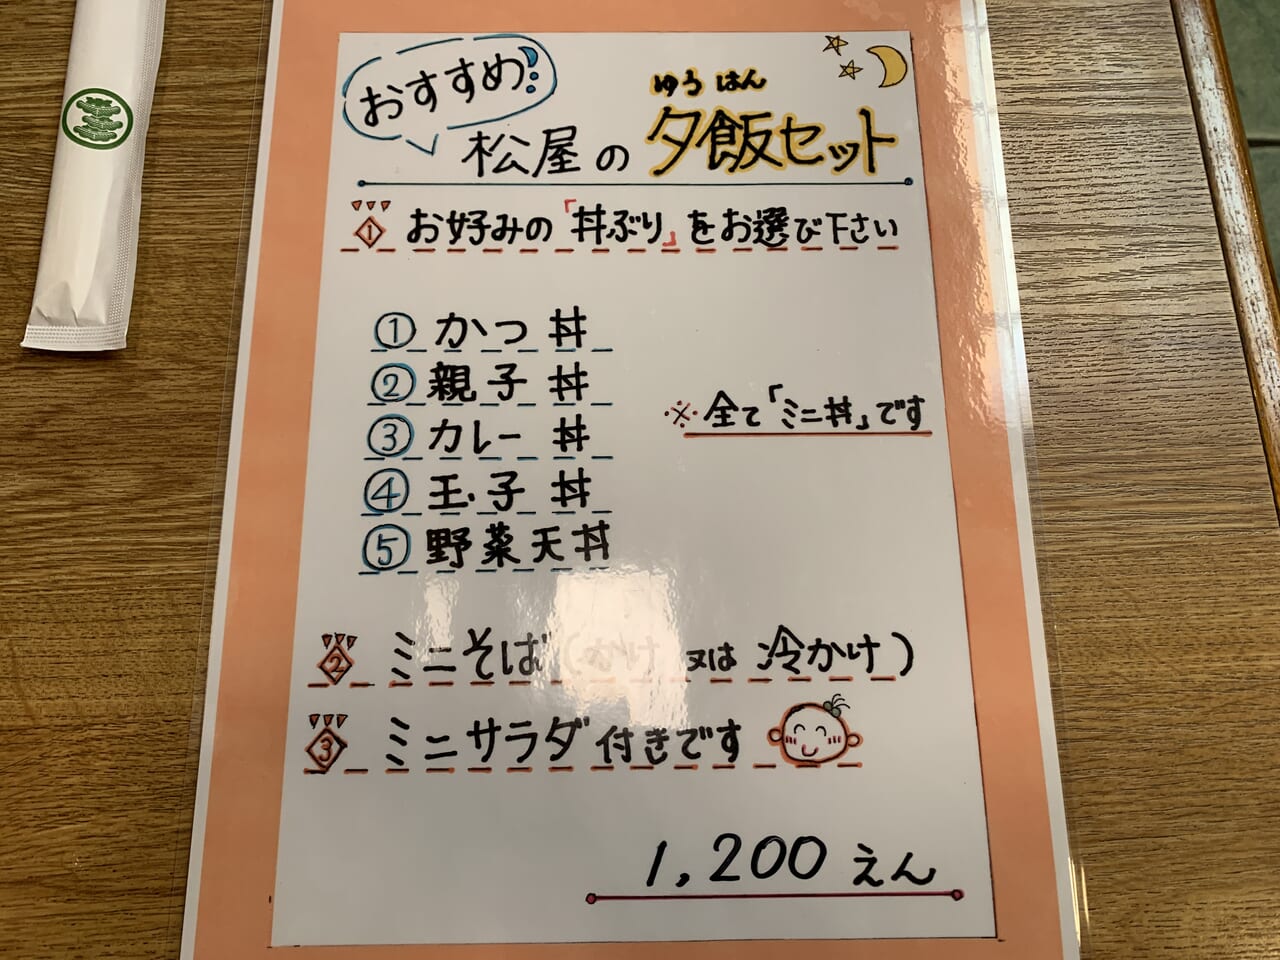 おすすめ!
ゆうはん
松屋の夕飯セット
1 お好みの「丼ぶり」をお選び下さい
① かつ丼
② 親子丼
③ カレー丼
④ 玉子丼
⑤ 野菜天丼
※全て「ミニ丼」です
2 ミニそば(かけ又は冷かけ)
3 ミニサラダ付きです
1,200えん